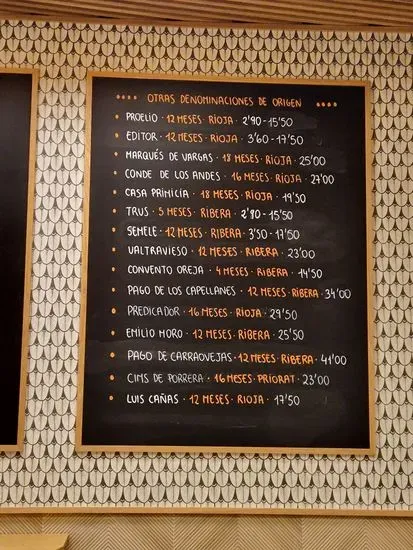 •••• OTRAS DENOMINACIONES DE ORIGEN ••••
• PROELIO · 12 MESES · RIOJA · 2'90 - 15'50
• EDITOR · 12 MESES · RIOJA · 3'60 - 17'50
MARQUÉS DE VARGAS · 18 MESES · RIOJA · 25'00
• CONDE DE LOS ANDES · 16 MESES · RIOJA · 27'00
CASA PRIMICIA · 18 MESES · RIOJA · 19'50
• TRUS · 5 MESES · RIBERA · 2'80 - 15'50
• SEMELE · 12 MESES · RIBERA · 3'50 - 17'50
• VALTRAVIESO · 12 MESES · RIBERA · 23'00
• CONVENTO OREJA · 4 MESES · RIBERA · 14'50
• PAGO DE LOS CAPELLANES · 12 MESES · RIBERA · 34'00
PREDICADOR · 16 MESES · RIOJA · 29'50
• EMILIO MORO · 12 MESES · RIBERA · 25'50
• PAGO DE CARRAOVEJAS · 12 MESES · RIBERA · 41'00
• CIMS DE PORRERA · 16 MESES · PRIORAT · 23'00
• LUIS CAÑAS · 12 MESES · RIOJA · 17'50